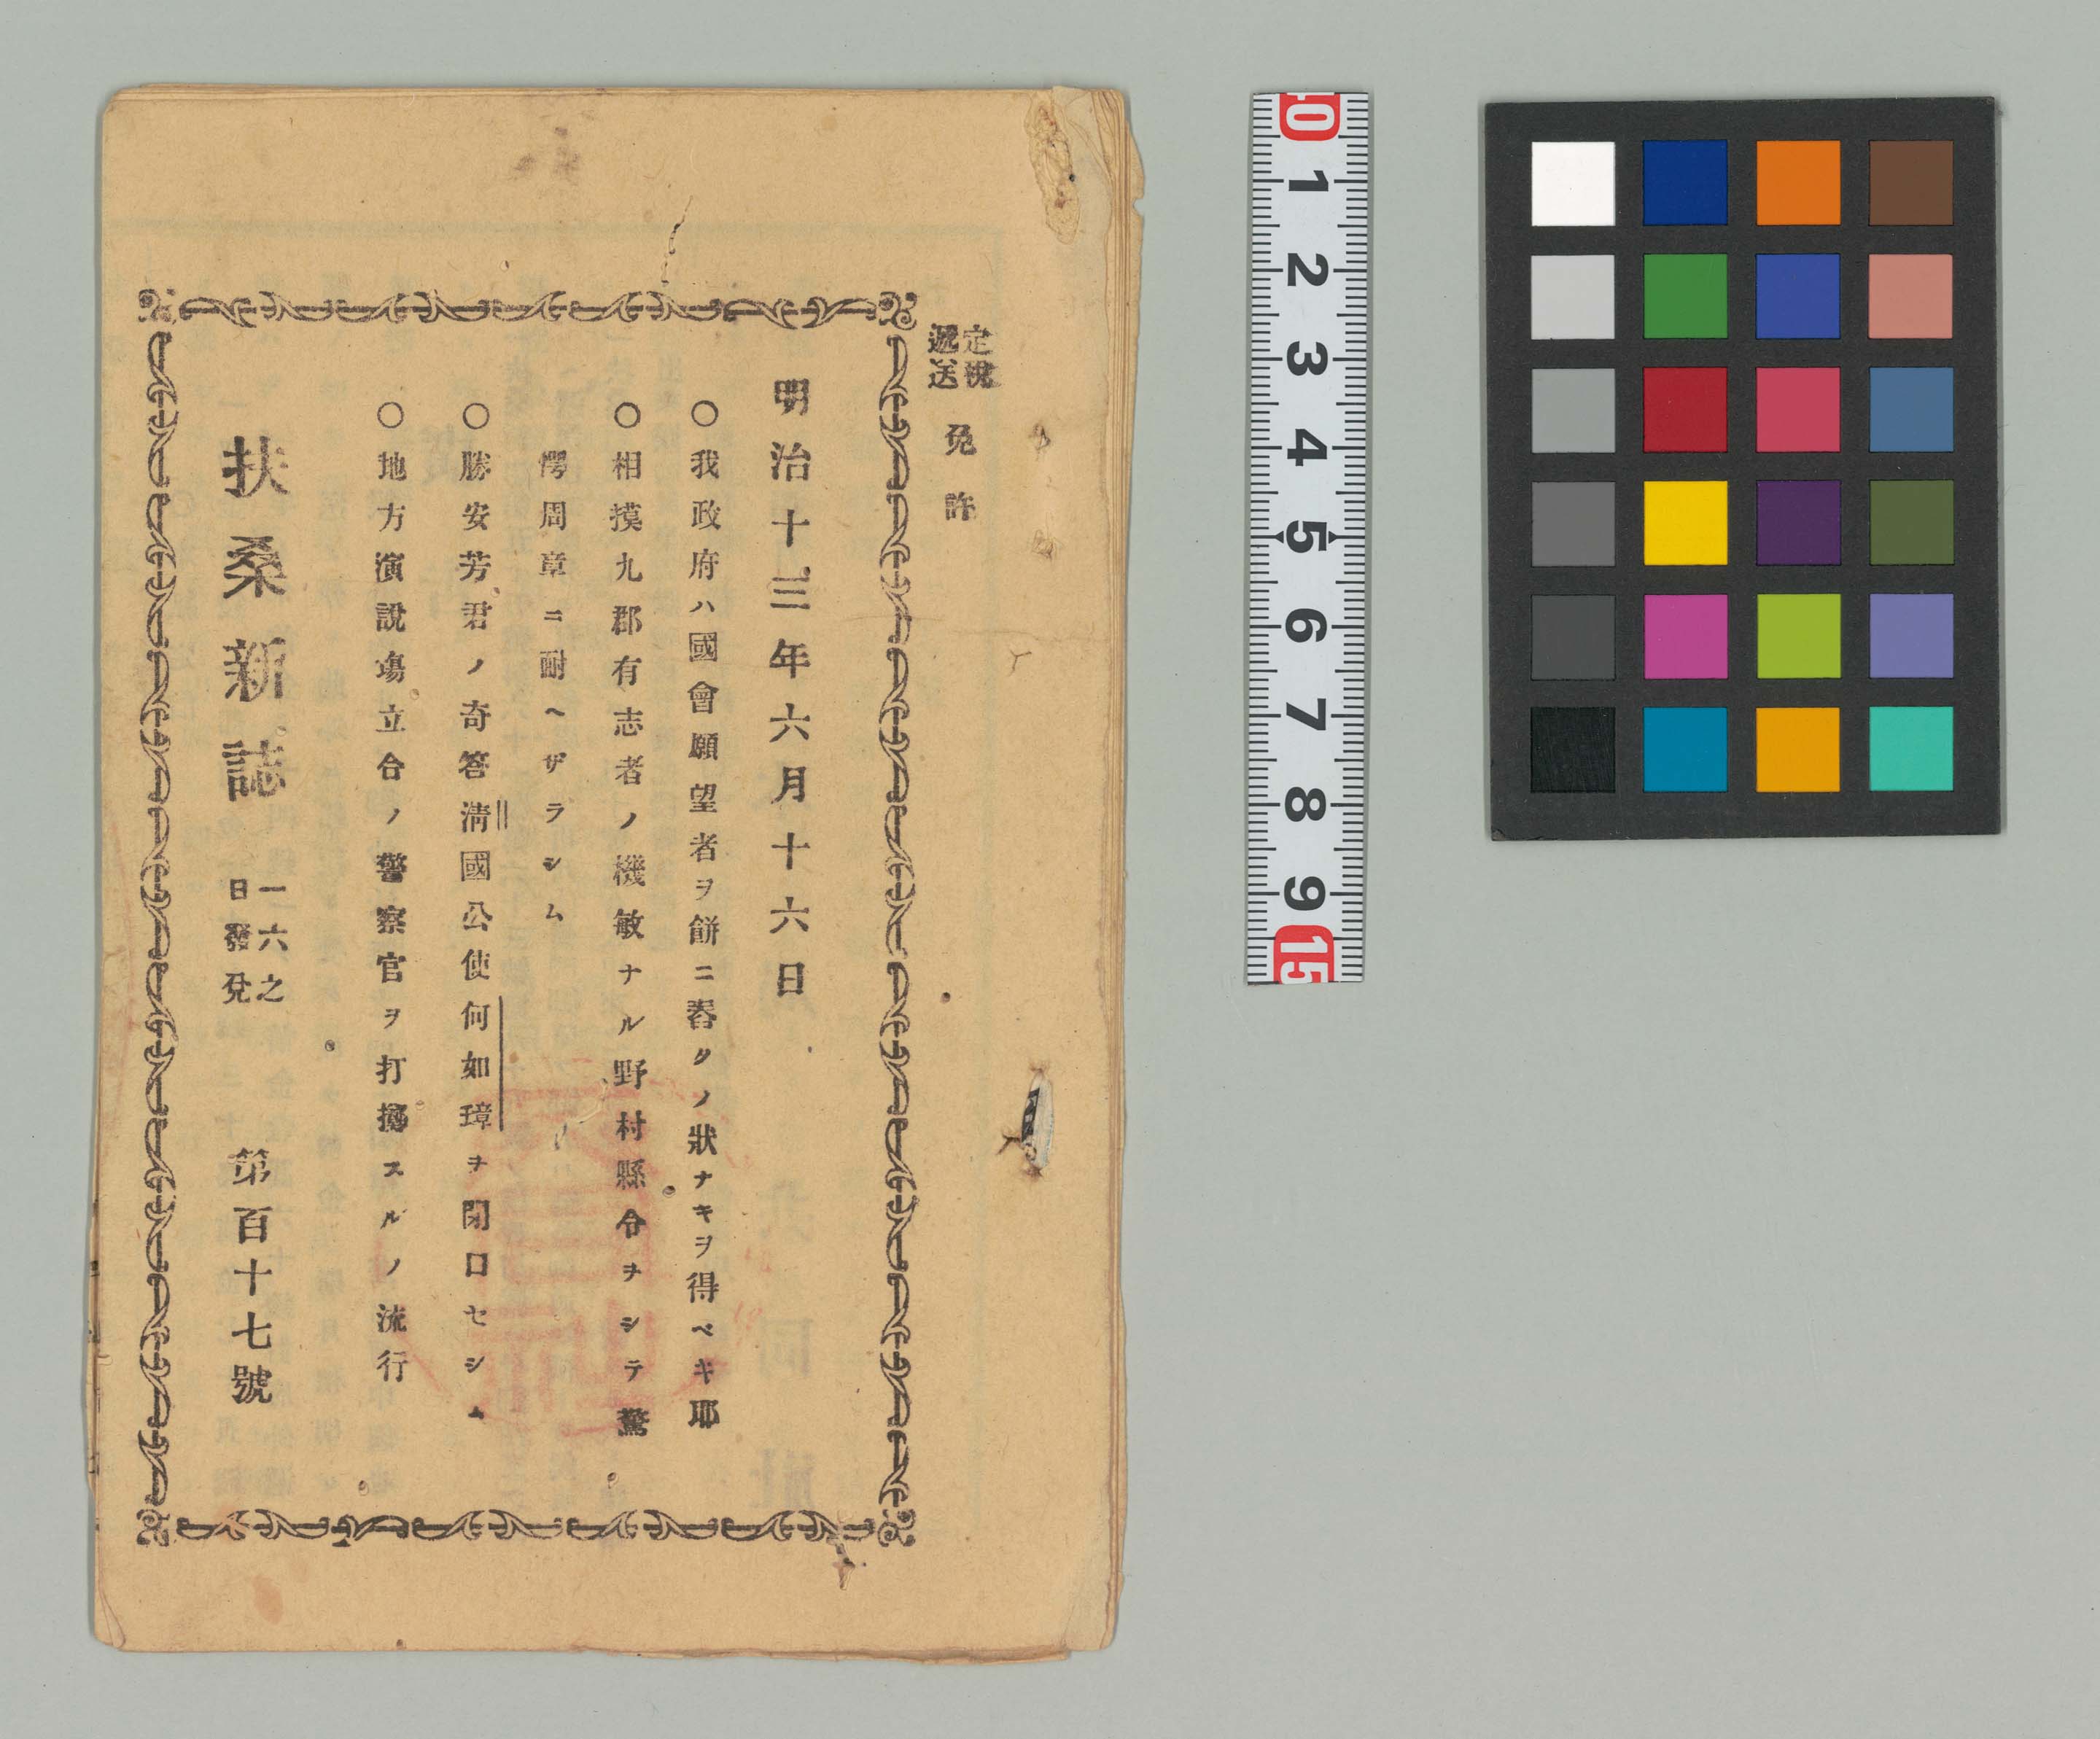 定税
遞送
免許
明治十三年六月十六日
○我政府ハ國會願望者ヲ餅ニ舂クノ狀ナキヲ得ベキ耶
○相摸九郡有志者ノ機敏ナル野村縣令ヲシテ驚
愕周章ニ耐ヘザラシム
○勝安芳君ノ奇答淸國公使何如璋ヲ閉口セシム
○地方演說塲立合ノ警察官ヲ打擲スルノ流行
扶桑新誌
一六之
日發兌
第百十七號
10
1
2
3
4
5
6
7
8
9
15